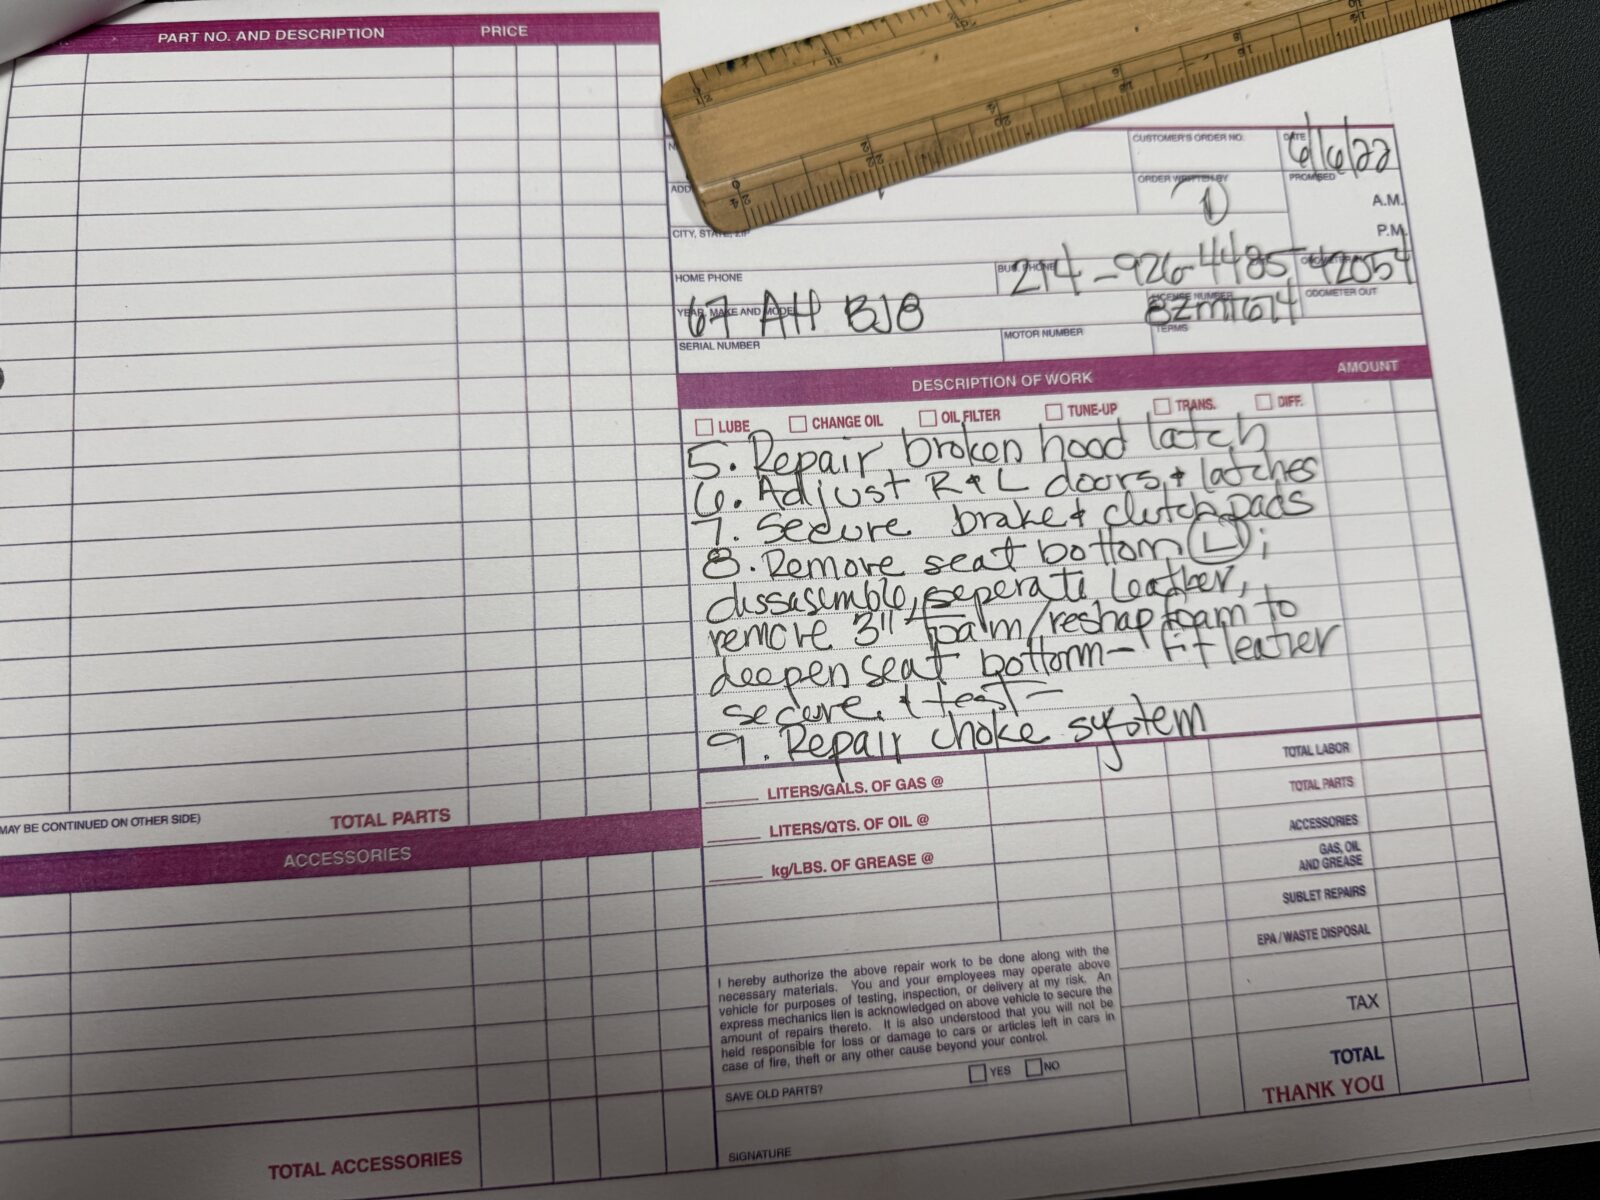 PART NO. AND DESCRIPTION PRICE
CUSTOMER'S ORDER NO. DATE 6/6/22
ADD
ORDER WRITTEN BY PROMISED
A.M.
P.M.
CITY, STATE, ZIP
HOME PHONE BUS. PHONE 214-926-4485 42054
67 AH BJ8
YEAR, MAKE AND MODEL LICENSE NUMBER ODOMETER OUT
SERIAL NUMBER MOTOR NUMBER TERMS
DESCRIPTION OF WORK AMOUNT
LUBE CHANGE OIL OIL FILTER TUNE-UP TRANS. DIFF.
5. Repair broken hood latch
6. Adjust R & L doors & latches
7. Secure brake & clutch pads
8. Remove seat bottom L ;
dissasemble, seperate leather,
remove 3" foam/reshap foam to
deepen seat bottom - fit leather
secure & test -
9. Repair choke system
LITERS/GALS. OF GAS @ TOTAL LABOR
TOTAL PARTS
LITERS/QTS. OF OIL @ ACCESSORIES
kg/LBS. OF GREASE @ GAS, OIL
AND GREASE
SUBLET REPAIRS
EPA / WASTE DISPOSAL
TAX
TOTAL
THANK YOU
I hereby authorize the above repair work to be done along with the
necessary materials. You and your employees may operate above
vehicle for purposes of testing, inspection, or delivery at my risk. An
express mechanics lien is acknowledged on above vehicle to secure the
amount of repairs thereto. It is also understood that you will not be
held responsible for loss or damage to cars or articles left in cars in
case of fire, theft or any other cause beyond your control.
SAVE OLD PARTS? YES NO
SIGNATURE
MAY BE CONTINUED ON OTHER SIDE) TOTAL PARTS
ACCESSORIES
TOTAL ACCESSORIES